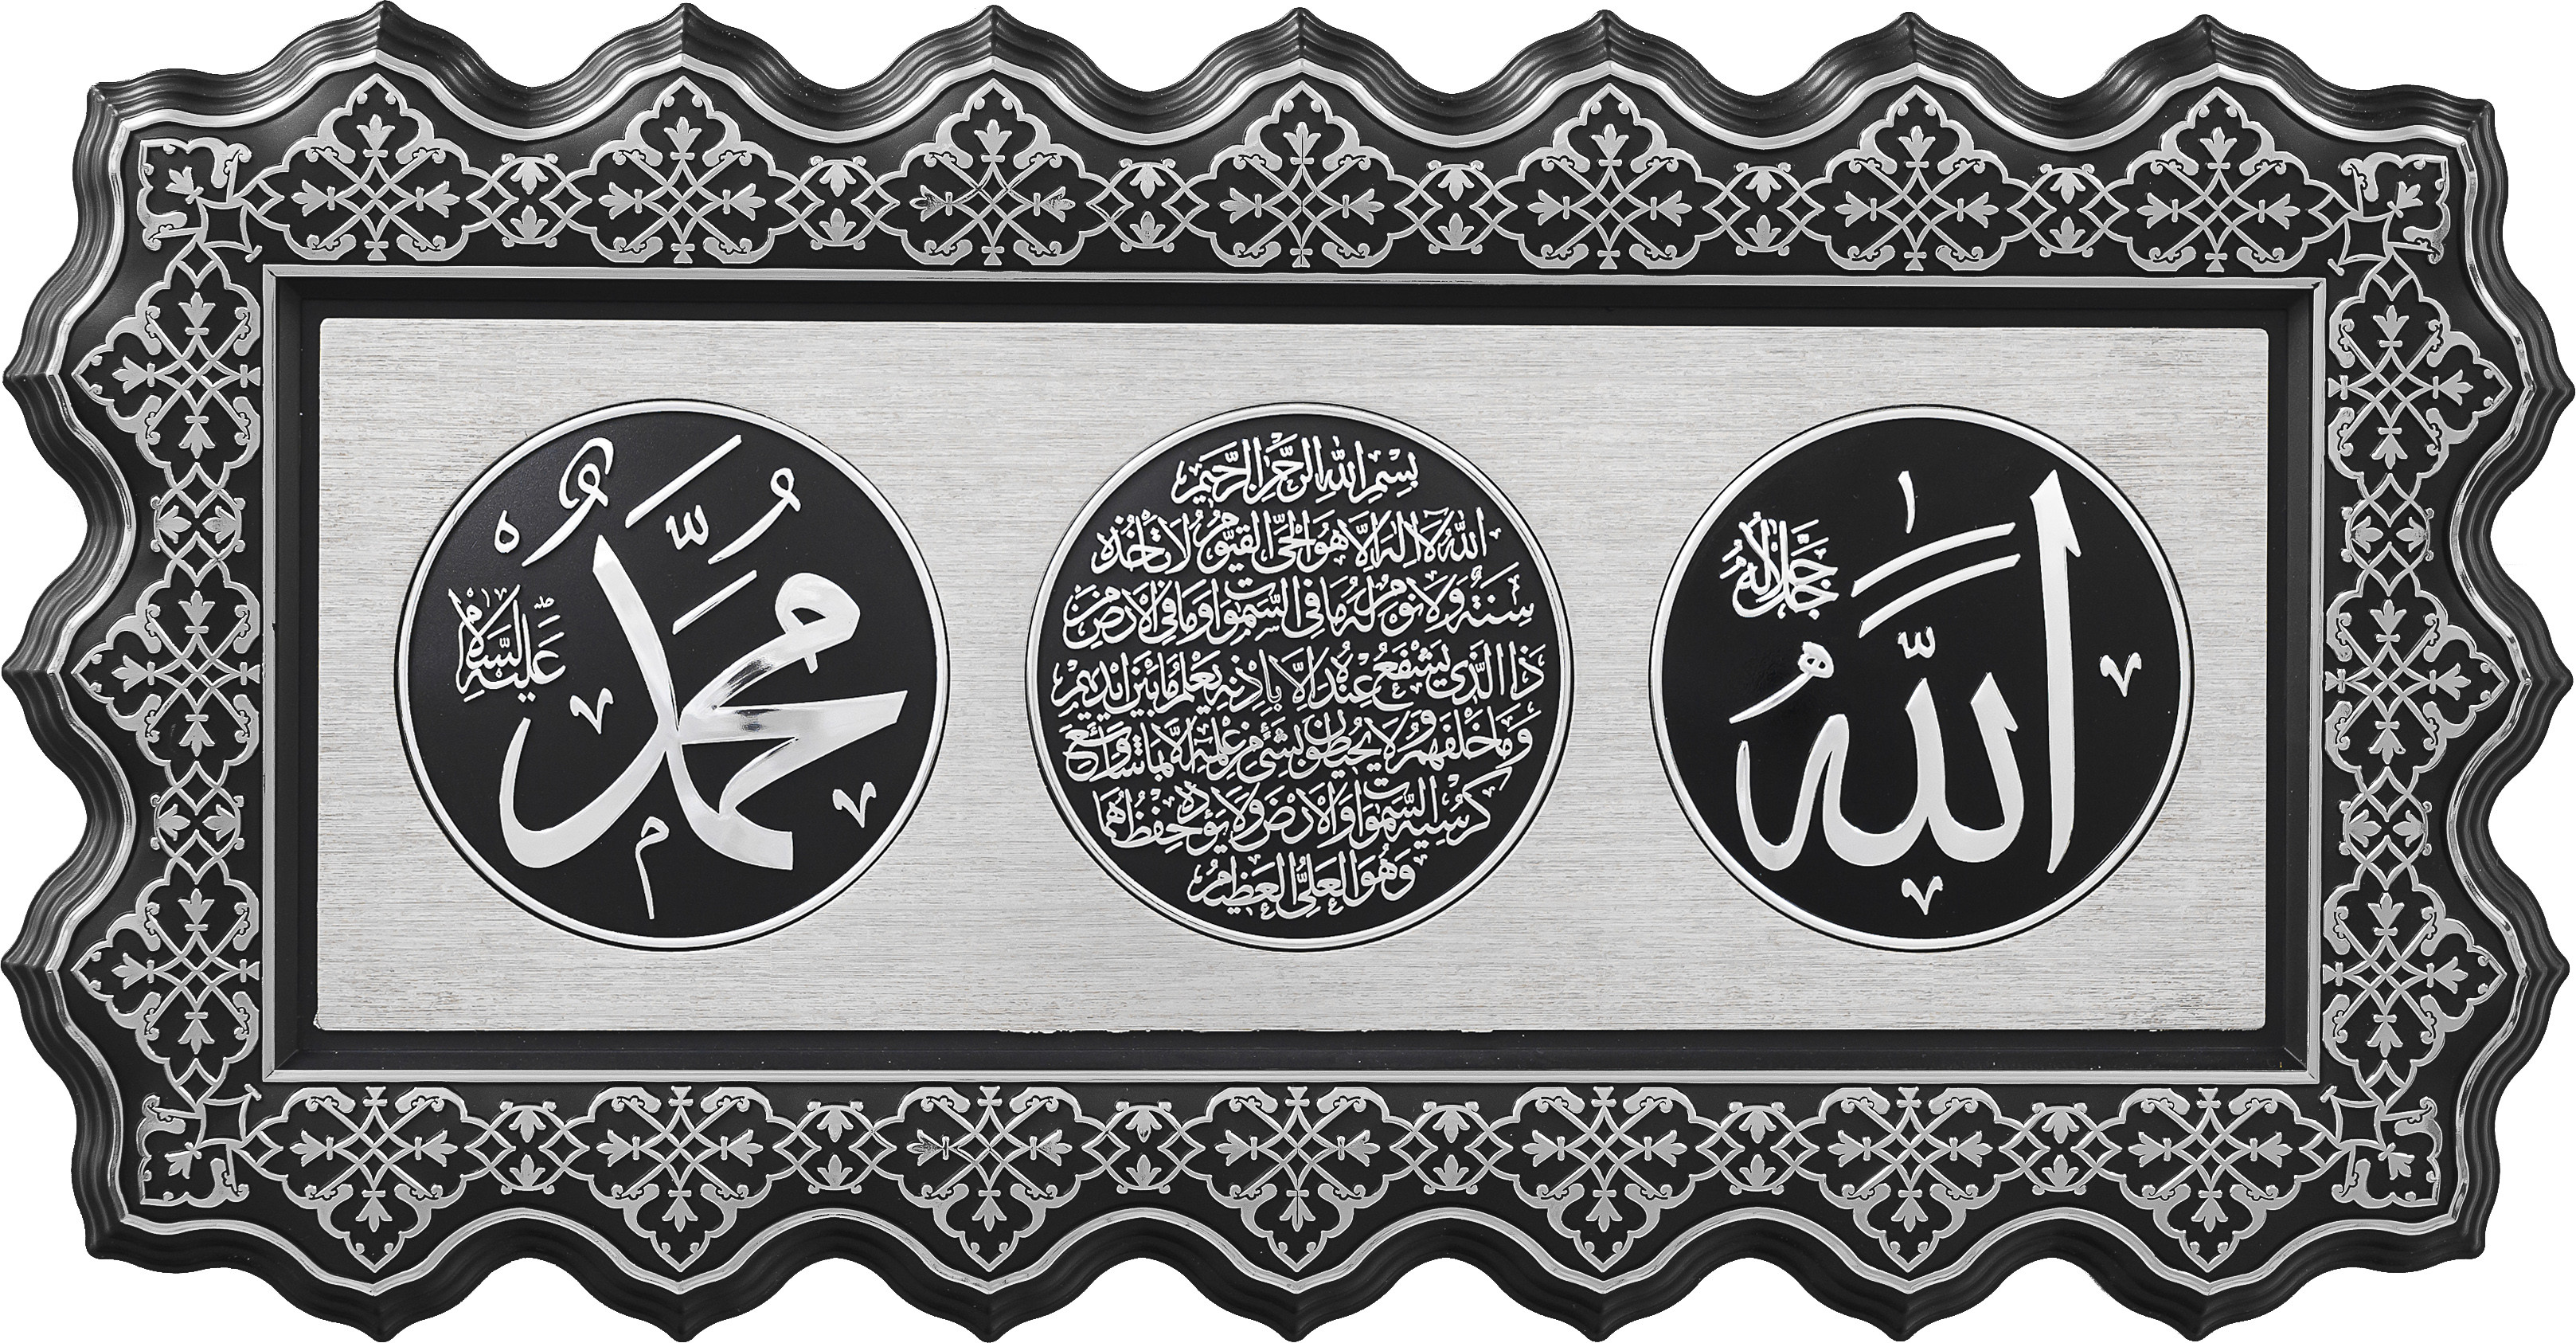 الله
جل جلاله
بسم الله الرحمن الرحيم
الله لا اله الا هو الحي القيوم لا تأخذه
سنة ولا نوم له ما في السموات وما في الارض من
ذا الذي يشفع عنده الا باذنه يعلم ما بين ايديهم
وما خلفهم ولا يحيطون بشئ من علمه الا بما شاء وسع
كرسيه السموات والارض ولا يؤده حفظهما
وهو العلي العظيم
محمد
عليه السلام